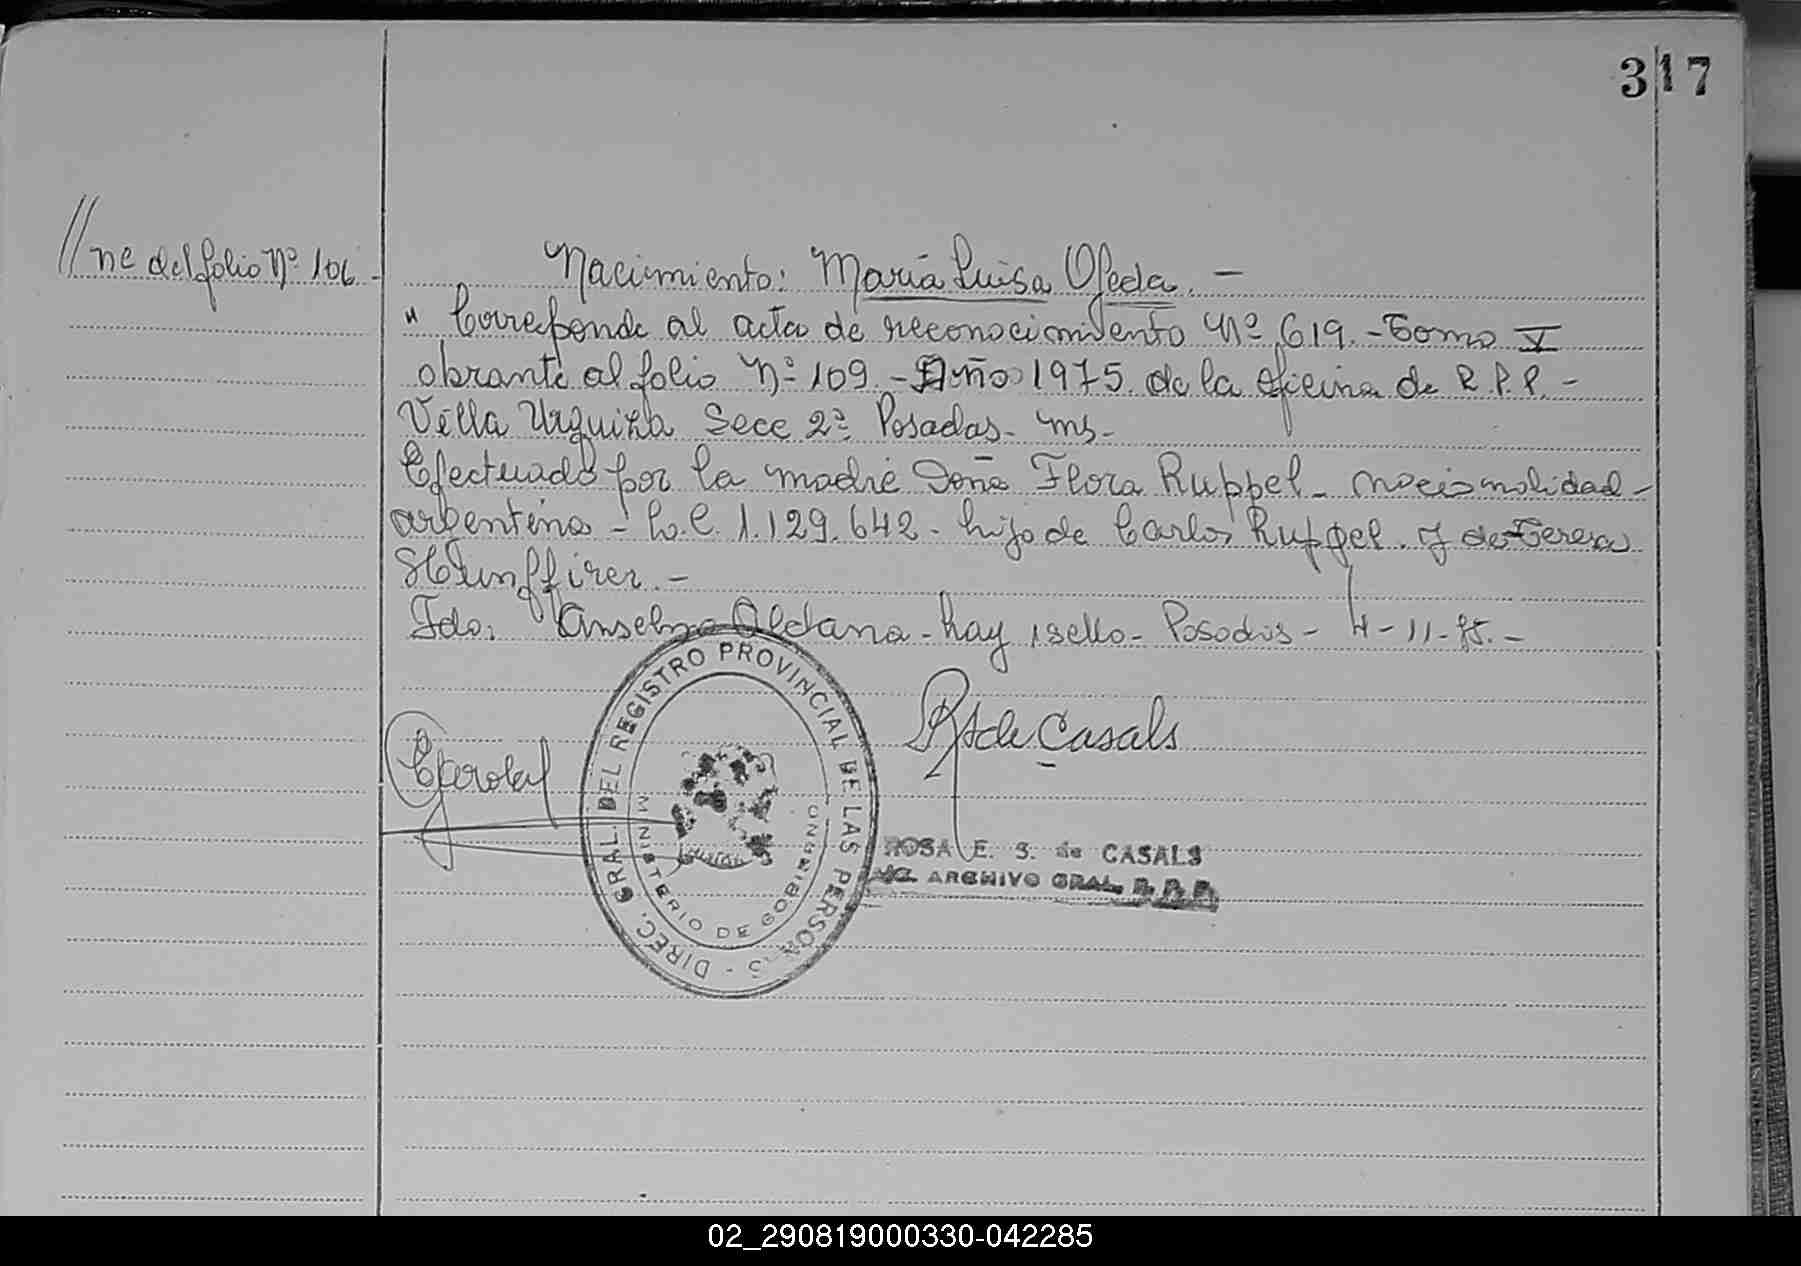 317
//ne del folio Nº 106.-
Nacimiento: María Luisa Ojeda.-
" Corresponde al acta de reconocimiento Nº 619.-Tomo V
obrante al folio Nº 109.- Año 1975. de la oficina de R.P.P.-
Villa Urquiza Secc 2ª. Posadas- ms-
Efectuado por la madre Doña Flora Ruppel- nacionalidad-
argentina- L.C. 1.129.642- hija de Carlos Ruppel. y de Teresa
Fdo: Anselmo Aldana- hay 1 sello- Posadas- 4-11-75.-
R S de Casals
DIREC. GRAL. DEL REGISTRO PROVINCIAL DE LAS PERSONAS -
MINISTERIO DE GOBIERNO
ROSA E. S. de CASALS
ARCHIVO GRAL. R. P. P.
02_290819000330-042285